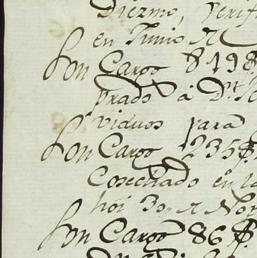 Diezmo, verifi
en Junio
Son Cargo 8198
prado á Dn
viduos para
Son Cargo 235$
Cosechado en la
hoi 30 Nov
Son Cargo 86$